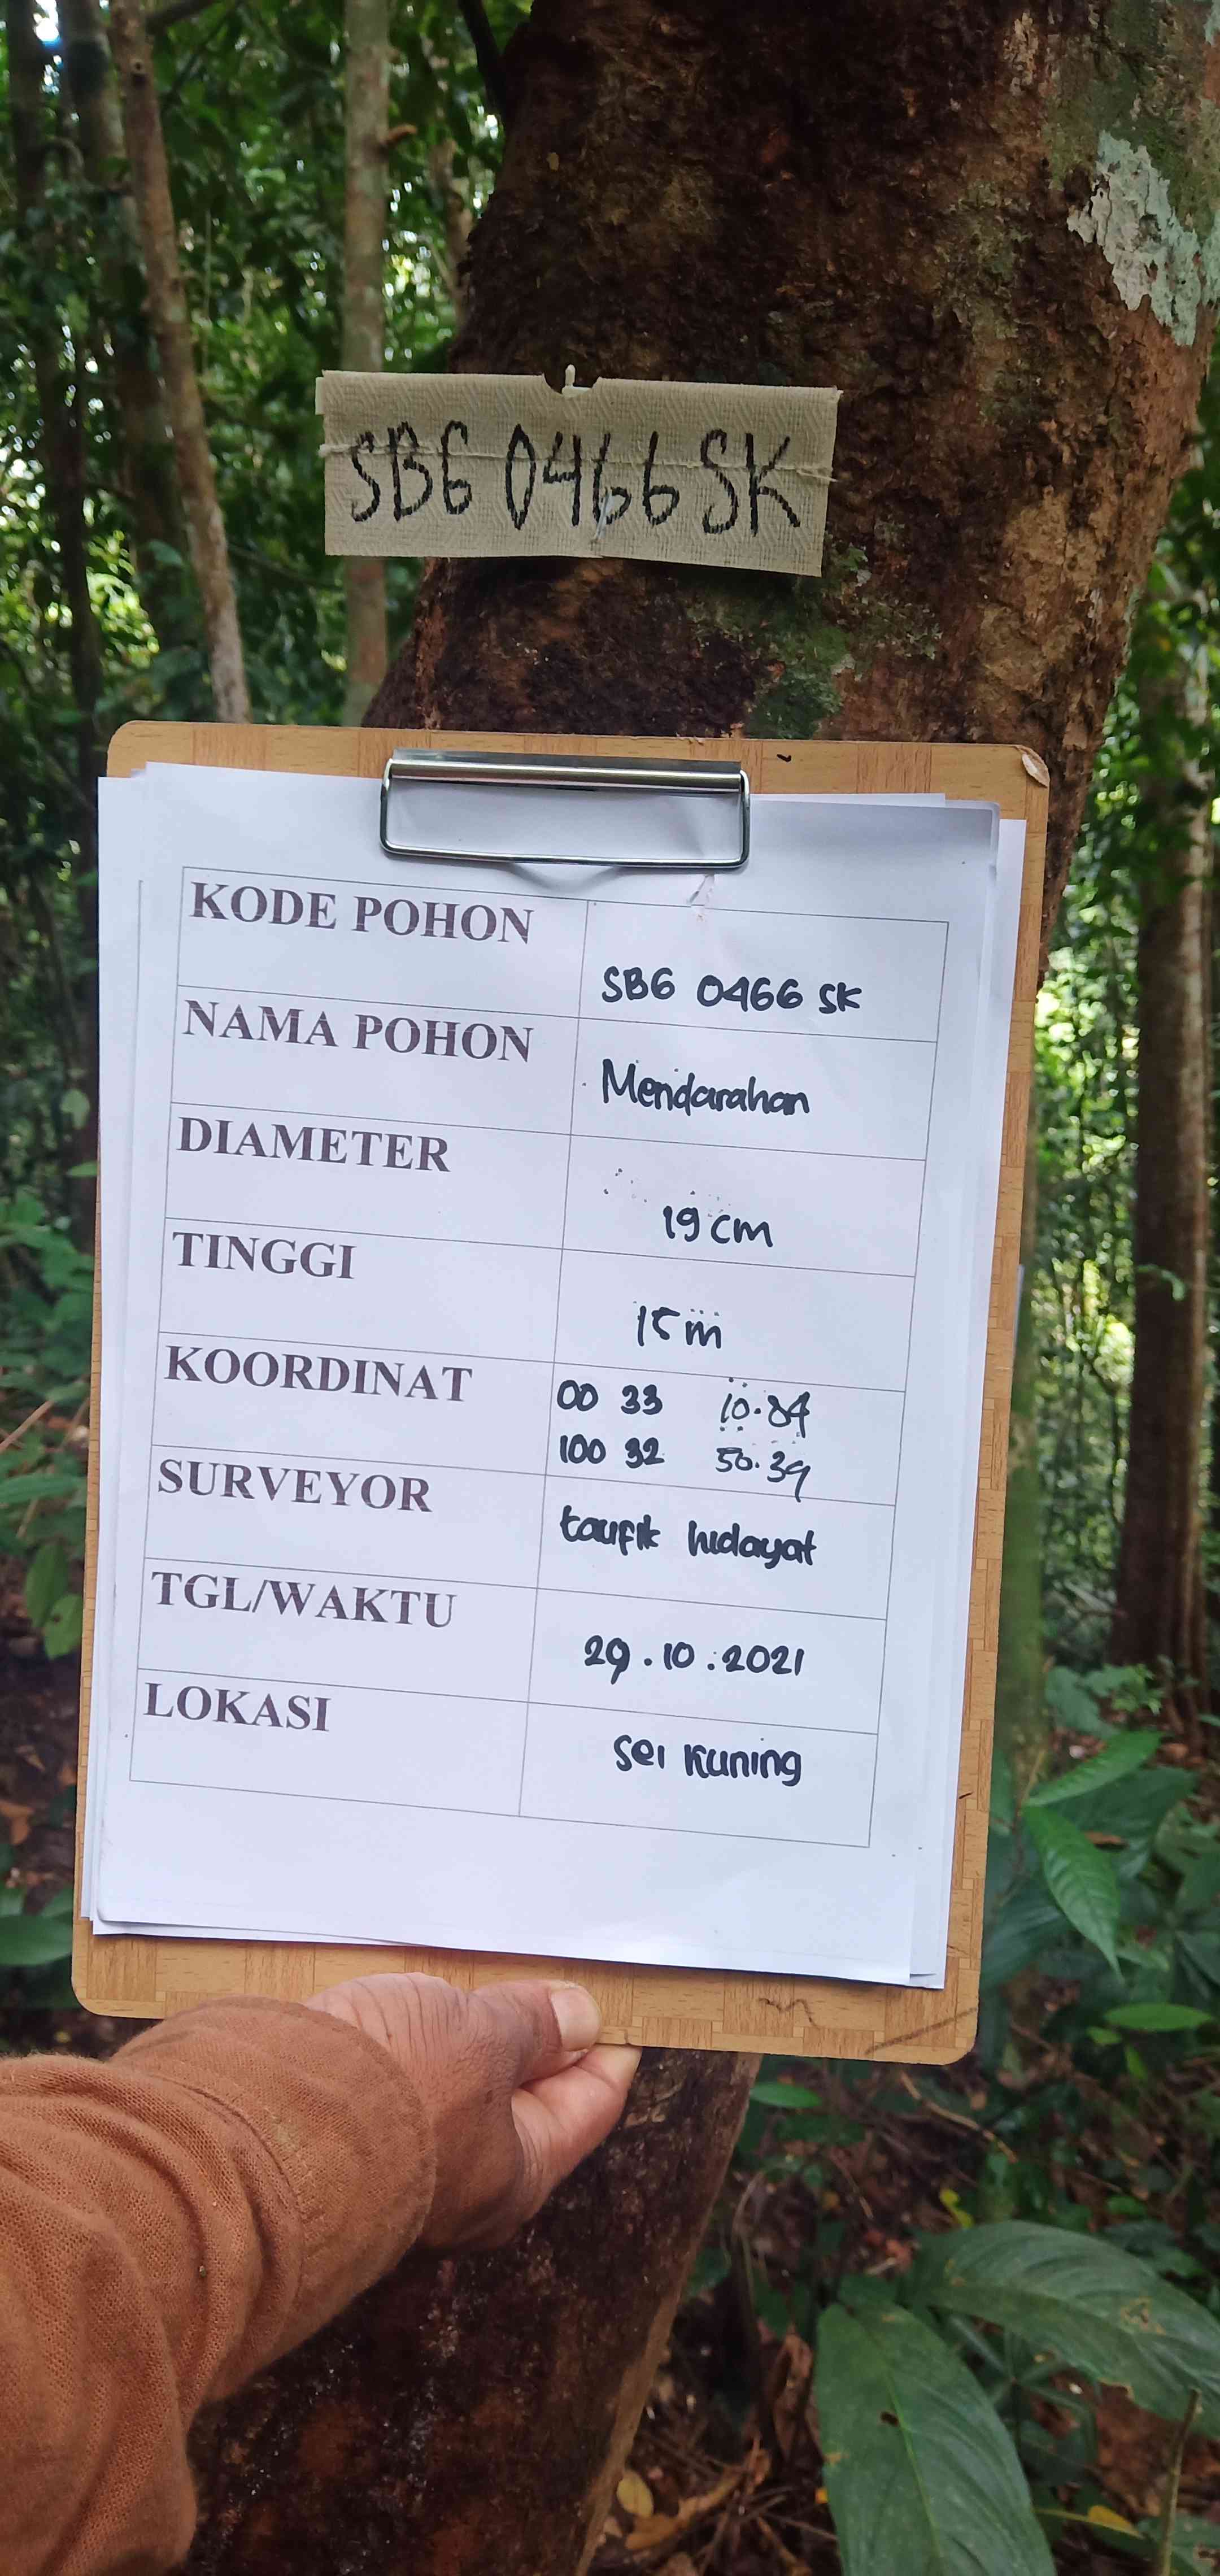 SBG 0466 SK
KODE POHON
SBG 0466 SK
NAMA POHON
Mendarahan
DIAMETER
19 cm
TINGGI
15 m
KOORDINAT
00 33 10.84
100 32 50.39
SURVEYOR
taufik hidayat
TGL/WAKTU
29.10.2021
LOKASI
Sei Kuning